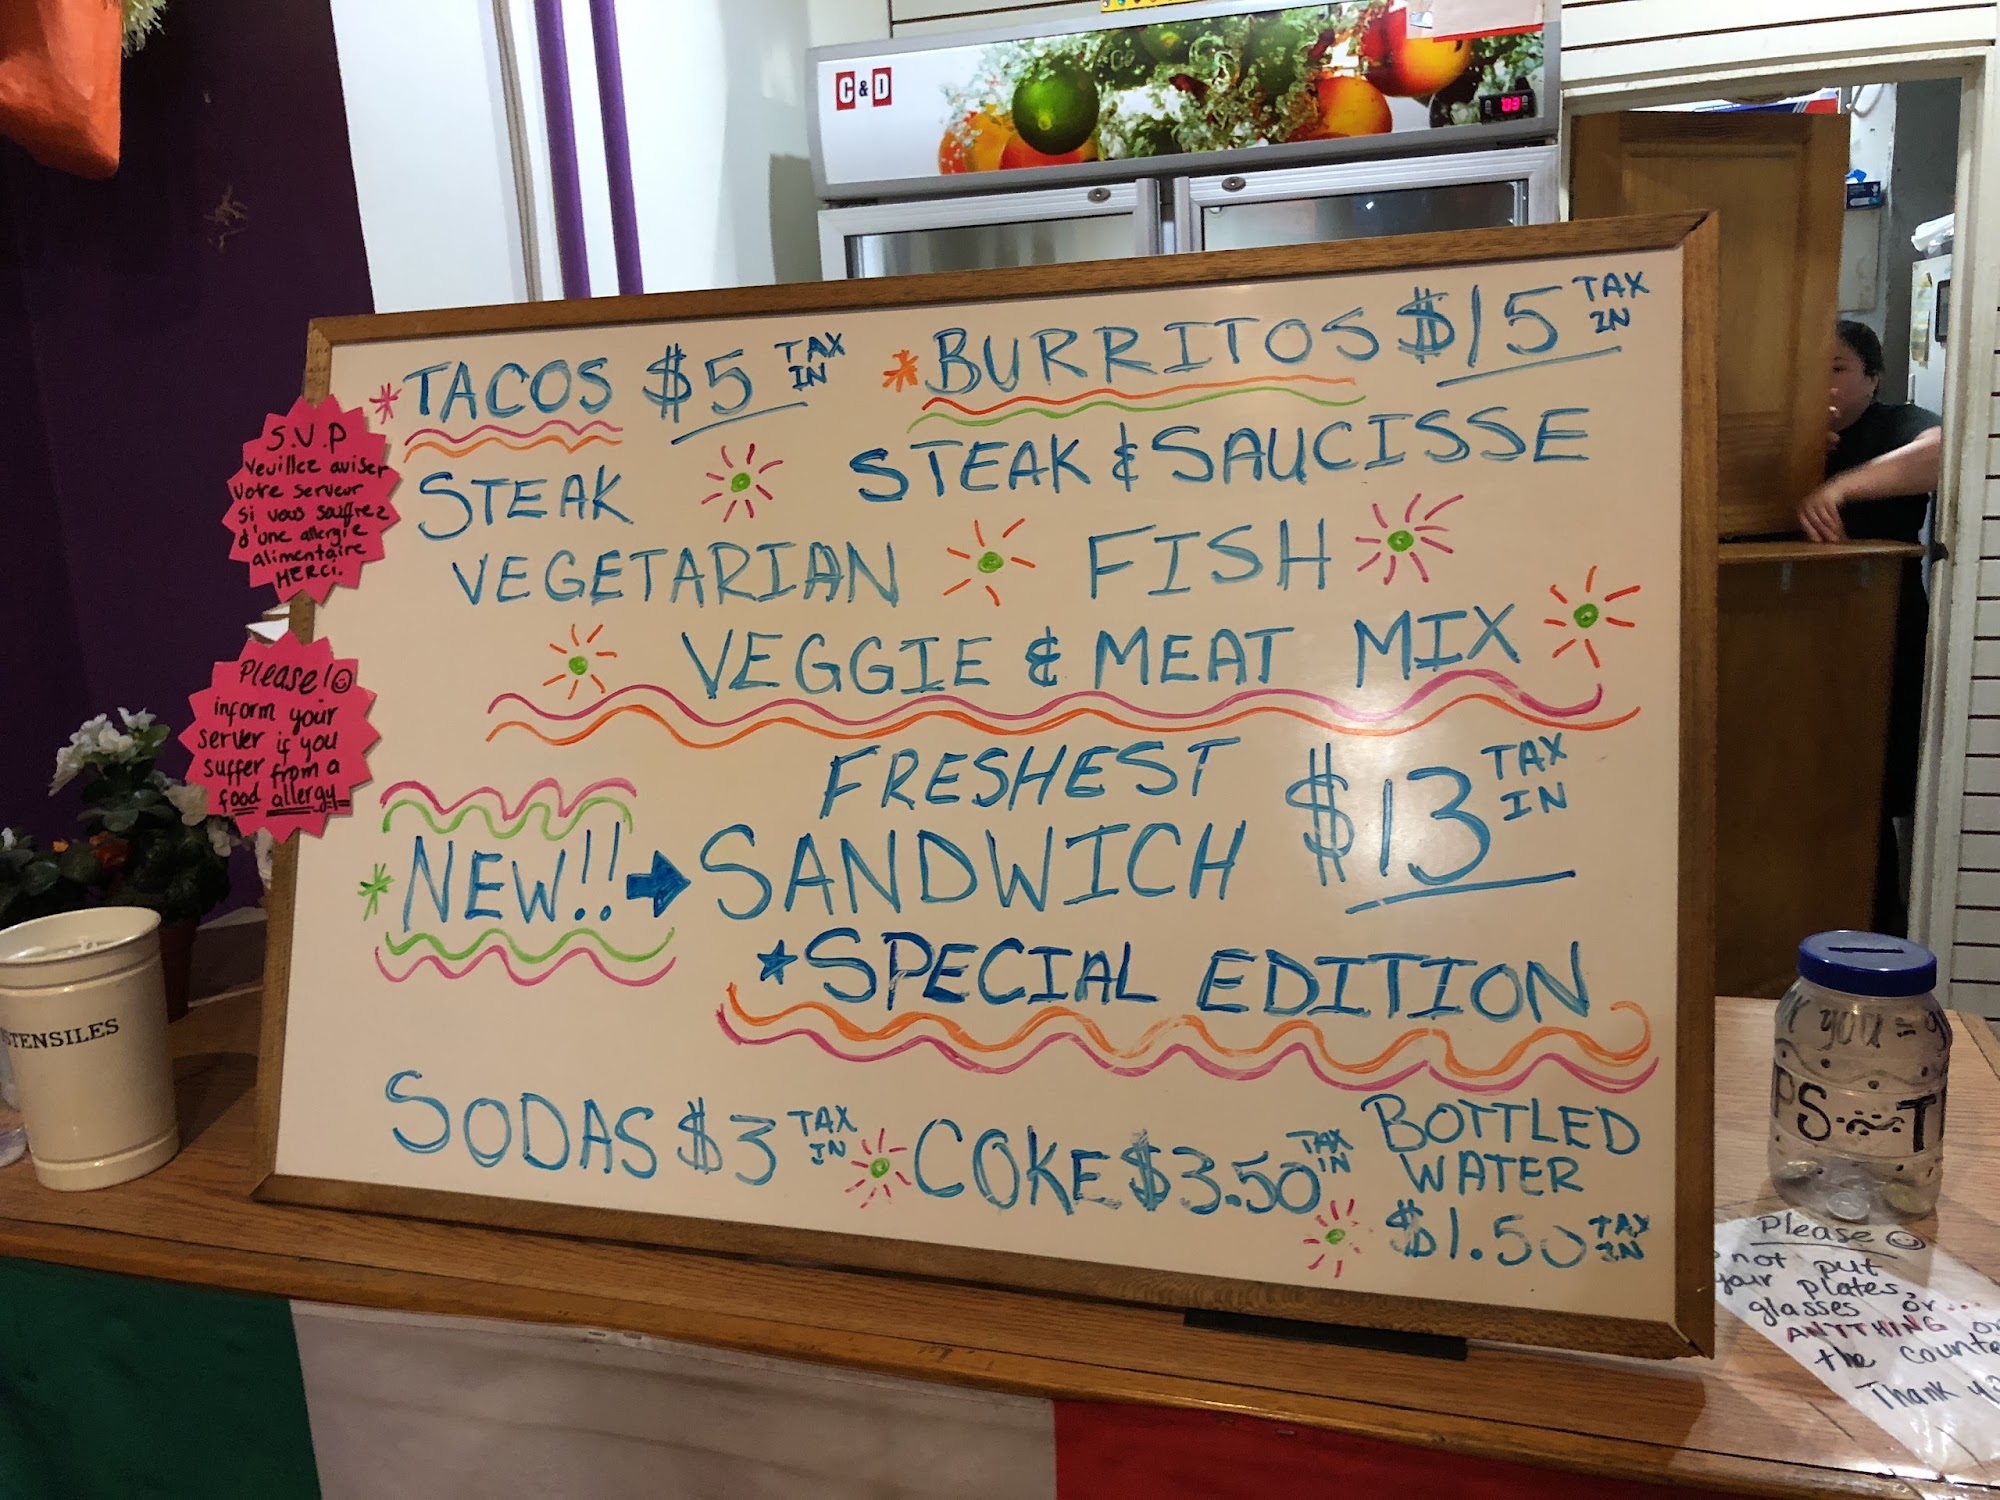 C & D
TACOS $5 TAX IN
BURRITOS $15 TAX IN
STEAK
STEAK & SAUCISSE
VEGETARIAN
FISH
VEGGIE & MEAT MIX
NEW!!
FRESHEST
SANDWICH $13 TAX IN
SPECIAL EDITION
SODAS $3 TAX IN
COKE $3.50 TAX IN
BOTTLED
WATER
$1.50 TAX IN
S.V.P
Veuillez aviser
votre serveur
si vous souffrez
d'une allergie
alimentaire
MERCI.
Please!
inform your
server if you
suffer from a
food allergy
STENSILES
you =
PS T
Please
not put
your plates,
glasses or...
ANYTHING
the
Thank